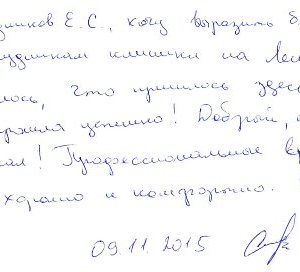 дников Е.С., хочу выразить б
рудникам клиники на Лен
лось, что пришлось здес
рошла успешно! Добрый,
ал! Профессиональные вр
хорошо и комфортно.
09.11.2015